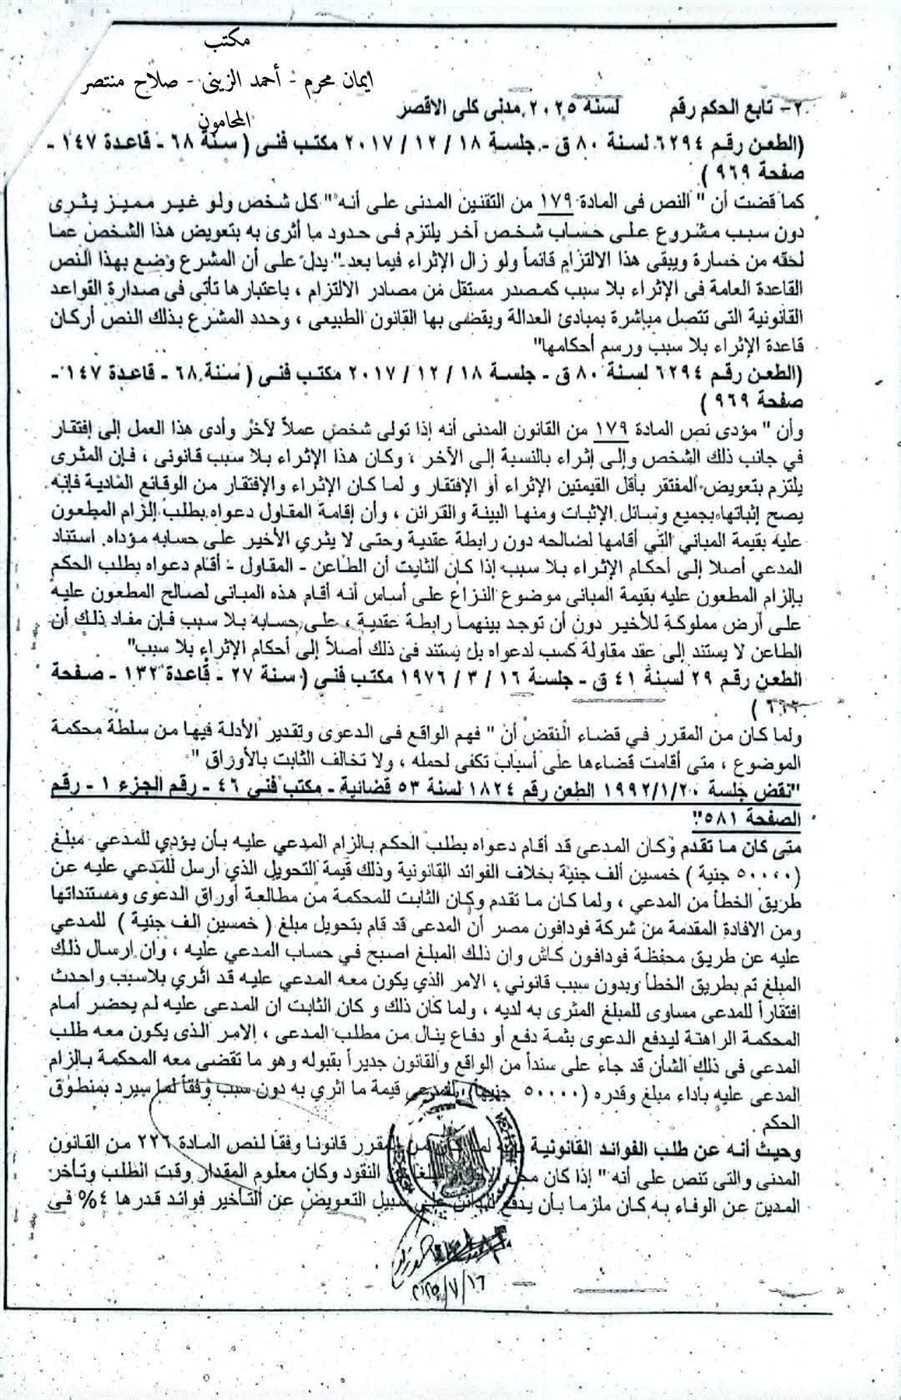 مكتب
ايمان محرم - أحمد الزينى - صلاح منتصر
المحامون
٢- تابع الحكم رقم لسنه ٢٠٢٥ مدنى كلى الاقصر
(الطعن رقم ٦٢٩٤ لسنة ٨٠ ق - جلسة ١٨ / ١٢ / ٢٠١٧ مكتب فنى ( سنة ٦٨ - قاعدة ١٤٧ -
صفحة ٩٦٩ )
كما قضت أن " النص فى المادة ١٧٩ من التقنين المدنى على أنه " كل شخص ولو غير مميز يثرى
دون سبب مشروع على حساب شخص آخر يلتزم فى حدود ما أثرى به بتعويض هذا الشخص عما
لحقه من خسارة ويبقى هذا الالتزام قائماً ولو زال الإثراء فيما بعد " يدل على أن المشرع وضع بهذا النص
القاعدة العامة فى الإثراء بلا سبب كمصدر مستقل من مصادر الالتزام ، باعتبارها تأتى فى صدارة القواعد
القانونية التى تتصل مباشرة بمبادئ العدالة ويقضى بها القانون الطبيعى ، وحدد المشرع بذلك النص أركان
قاعدة الإثراء بلا سبب ورسم أحكامها"
(الطعن رقم ٦٢٩٤ لسنة ٨٠ ق - جلسة ١٨ / ١٢ / ٢٠١٧ مكتب فنى ( سنة ٦٨ - قاعدة ١٤٧ -
صفحة ٩٦٩ )
وأن " مؤدى نص المادة ١٧٩ من القانون المدنى أنه إذا تولى شخص عملاً لآخر وأدى هذا العمل إلى إفتقار
في جانب ذلك الشخص وإلى إثراء بالنسبة إلى الآخر ، وكان هذا الإثراء بلا سبب قانونى ، فإن المثرى
يلتزم بتعويض المفتقر بأقل القيمتين الإثراء أو الإفتقار و لما كان الإثراء والإفتقار من الوقائع المادية فإنه
يصح إثباتها بجميع وسائل الإثبات ومنها البينة والقرائن ، وأن إقامة المقاول دعواه بطلب إلزام المطعون
عليه بقيمة المباني التي أقامها لصالحه دون رابطة عقدية وحتى لا يثري الأخير على حسابه مؤداه. استناد
المدعي أصلا إلى أحكام الإثراء بلا سبب إذا كان الثابت أن الطاعن - المقاول - أقام دعواه بطلب الحكم
بإلزام المطعون عليه بقيمة المبانى موضوع النزاع على أساس أنه أقام هذه المبانى لصالح المطعون عليه
على أرض مملوكة للأخير دون أن توجد بينهما رابطة عقدية ، على حسابه بلا سبب فإن مفاد ذلك أن
الطاعن لا يستند إلى عقد مقاولة كسب لدعواه بل يستند فى ذلك أصلاً إلى أحكام الإثراء بلا سبب"
الطعن رقم ٢٩ لسنة ٤١ ق - جلسة ١٦ / ٣ / ١٩٧٦ مكتب فنى ( سنة ٢٧ - قاعدة ١٣٢ - صفحة
)
ولما كان من المقرر في قضاء النقض أن " فهم الواقع فى الدعوى وتقدير الأدلة فيها من سلطة محكمة
الموضوع ، متى أقامت قضاءها على أسباب تكفى لحمله ، ولا تخالف الثابت بالأوراق "
"نقض جلسة ١٩٩٢/١/٢٠ الطعن رقم ١٨٢٤ لسنة ٥٣ قضائية - مكتب فنى ٤٦ - رقم الجزء ١ - رقم
الصفحة ٥٨١"
متى كان ما تقدم وكان المدعى قد أقام دعواه بطلب الحكم بالزام المدعي عليه بأن يؤدي للمدعي مبلغ
(٥٠٠٠٠ جنية ) خمسين ألف جنية بخلاف الفوائد القانونية وذلك قيمة التحويل الذي أرسل للمدعي عليه عن
طريق الخطأ من المدعي ، ولما كان ما تقدم وكان الثابت للمحكمة من مطالعة أوراق الدعوى ومستنداتها
ومن الافادة المقدمة من شركة فودافون مصر أن المدعى قد قام بتحويل مبلغ ( خمسين الف جنية ) للمدعي
عليه عن طريق محفظة فودافون كاش وان ذلك المبلغ اصبح في حساب المدعي عليه ، وان ارسال ذلك
المبلغ تم بطريق الخطأ وبدون سبب قانوني ، الامر الذي يكون معه المدعي عليه قد اثري بلاسبب واحدث
افتقاراً للمدعى مساوى للمبلغ المثرى به لديه ، ولما كان ذلك و كان الثابت ان المدعى عليه لم يحضر أمام
المحكمة الراهنة ليدفع الدعوى بثمة دفع أو دفاع ينال من مطلب المدعى ، الامر الذى يكون معه طلب
المدعى فى ذلك الشأن قد جاء على سنداً من الواقع والقانون جديراً بقبوله وهو ما تقضى معه المحكمة بالزام
المدعى عليه بأداء مبلغ وقدره (٥٠٠٠٠ جنيها) للمدعي قيمة ما اثري به دون سبب وفقاً لما سيرد بمنطوق
الحكم .
وحيث أنه عن طلب الفوائد القانونية المقرر قانونا وفقا لنص المادة ٢٢٦ من القانون
المدنى والتى تنص على أنه " إذا كان النقود وكان معلوم المقدار وقت الطلب وتأخر
المدين عن الوفاء به كان ملزما بأن يدفع سبيل التعويض عن التأخير فوائد قدرها ٤% في
٢٠٢٥/٧/١٦